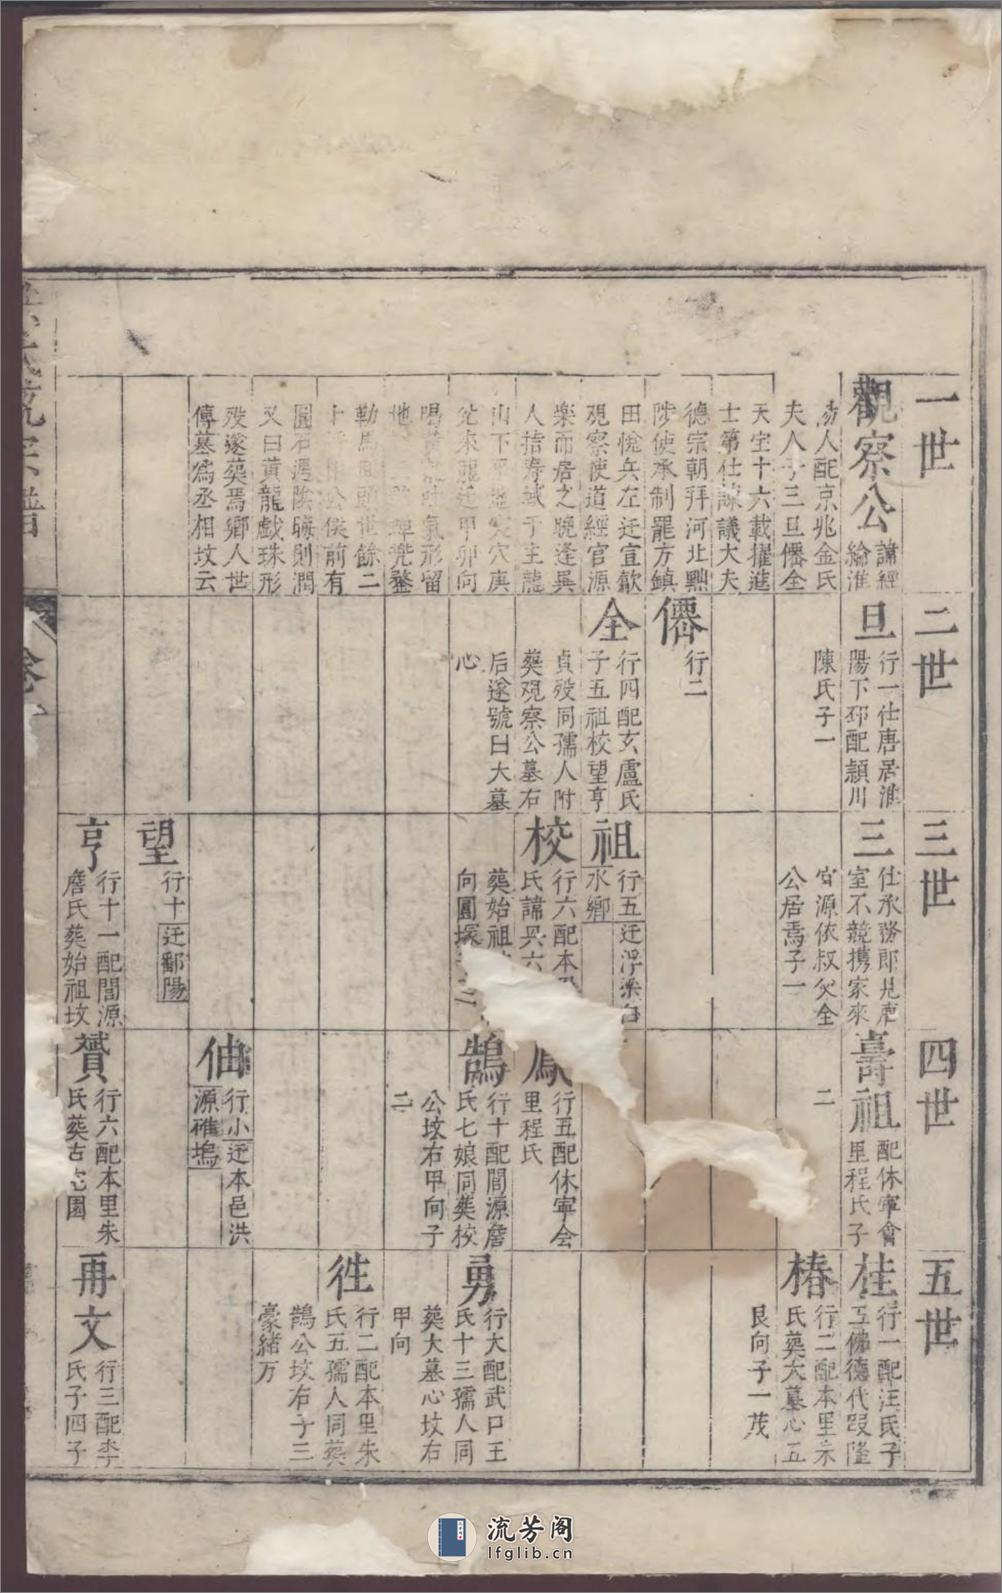 一世
觀察公
諱經
綸淮
人配京兆金氏
夫人子三旦僊全
天宝十六載擢進
士第仕諫議大夫
德宗朝拜河北黜
陟使承制罷方鎮
田悅兵左迁宣歙
观察使道經官源
楽而居之晚逢異
人指寿域于主龍
山下平地突穴庚
兊來龍辻甲卯向
氣形留
勒馬
餘二
公侯前有
圓石遇陰晦則潤
又曰黃龍戯珠形
殁遂葬焉鄉人世
傅墓爲丞相坟云
二世
旦
行一仕唐居淮
陽下邳配潁川
陳氏子一
僊
行二
全
行四配玄盧氏
子五祖校望亨
貞殁同孺人附
葬观察公墓右
后遂號曰大墓
心
三世
三
仕承務郎見唐
室不競携家來
官源依叔父全
公居焉子一
祖
行五迁浮梁白
水鄉
校
行六配本
氏諱異六
葬始祖
向圓塚
望
行十迁鄱陽
亨
行十一配閭源
詹氏葬始祖坟
四世
壽祖
配休寧會
里程氏子
二
鳳
行五配休寧会
里程氏
鵠
行十配閭源詹
氏七娘同葬校
公坟右甲向子
二
伷
行小迁本邑洪
源碓塢
贇
行六配本里朱
氏葬古坨園
五世
桂
行一配汪氏子
五佛德代叚隆
椿
行二配本里朱
氏葬大墓心五
艮向子一茂
勇
行大配武口王
氏十三孺人同
葬大墓心坟右
甲向
徃
行二配本里朱
氏五孺人同葬
鵠公坟右子三
豪緒万
再文
行三配李
氏子四子
氏統宗譜
流芳阁
lfglib.cn